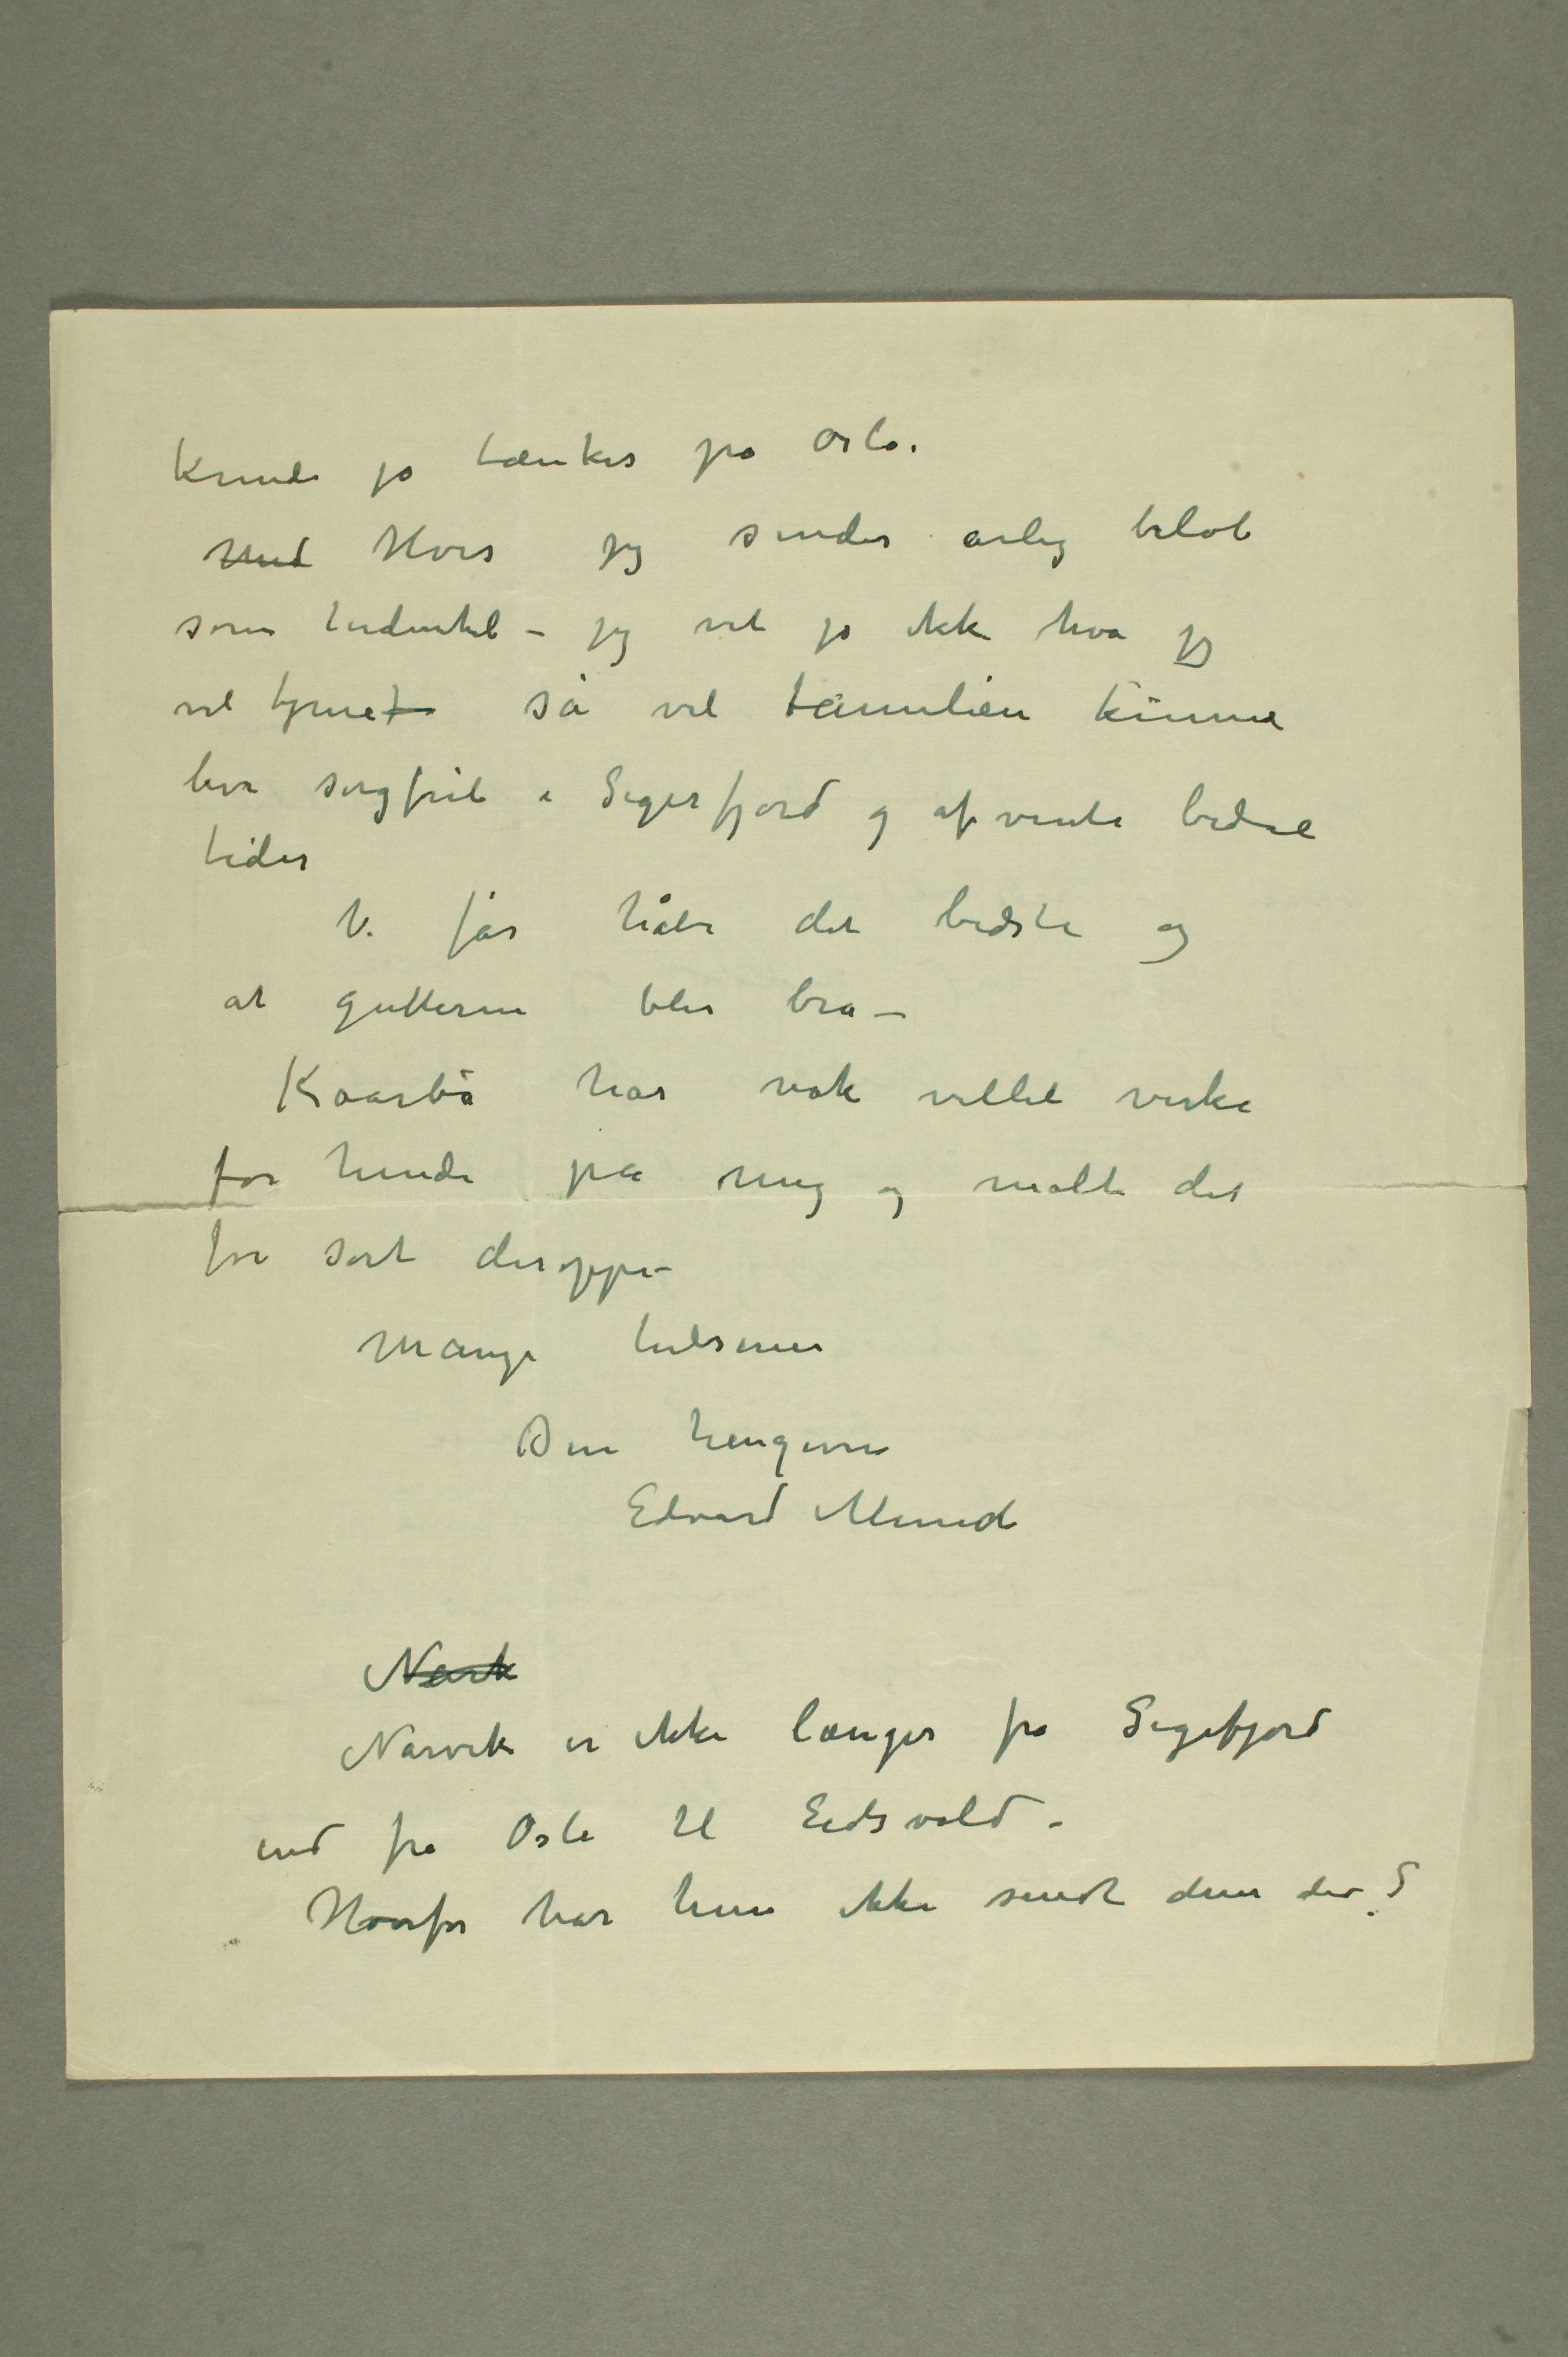 kunde jo tænkes på Oslo.
Med Hvis jeg sender årlig beløb
som hidentil – jeg vet jo ikke hva jeg
vil tjene så vil familien kunne
leve sorgfrit i Sigerfjord og afvente bedre
tider
Vi får håbe det bedste og
at gutterne blir bra –
Kaarbø har nok villet virke
for hende på mig og malte det
for sort deroppe –
Mange hilsener
Din hengivne
Edvard Munch
Narvik er ikke længer fra Sigefjord
end fra Oslo til Eidsvold –
Hvorfor har hun ikke sendt dem der?